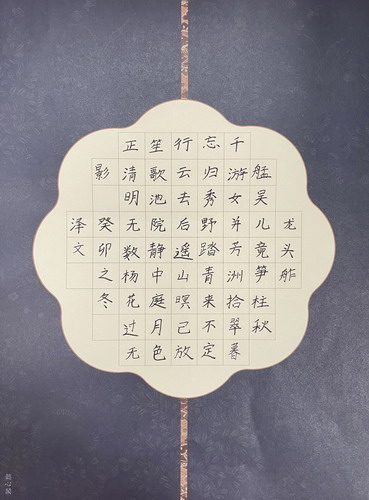 龙头舴
艋吴儿竟笋柱秋
千游女并芳洲拾翠暮
忘归秀野踏青来不定
行云去后遥山暝已放
笙歌池院静中庭月色
正清明无数杨花过无
影 癸卯之冬
泽文